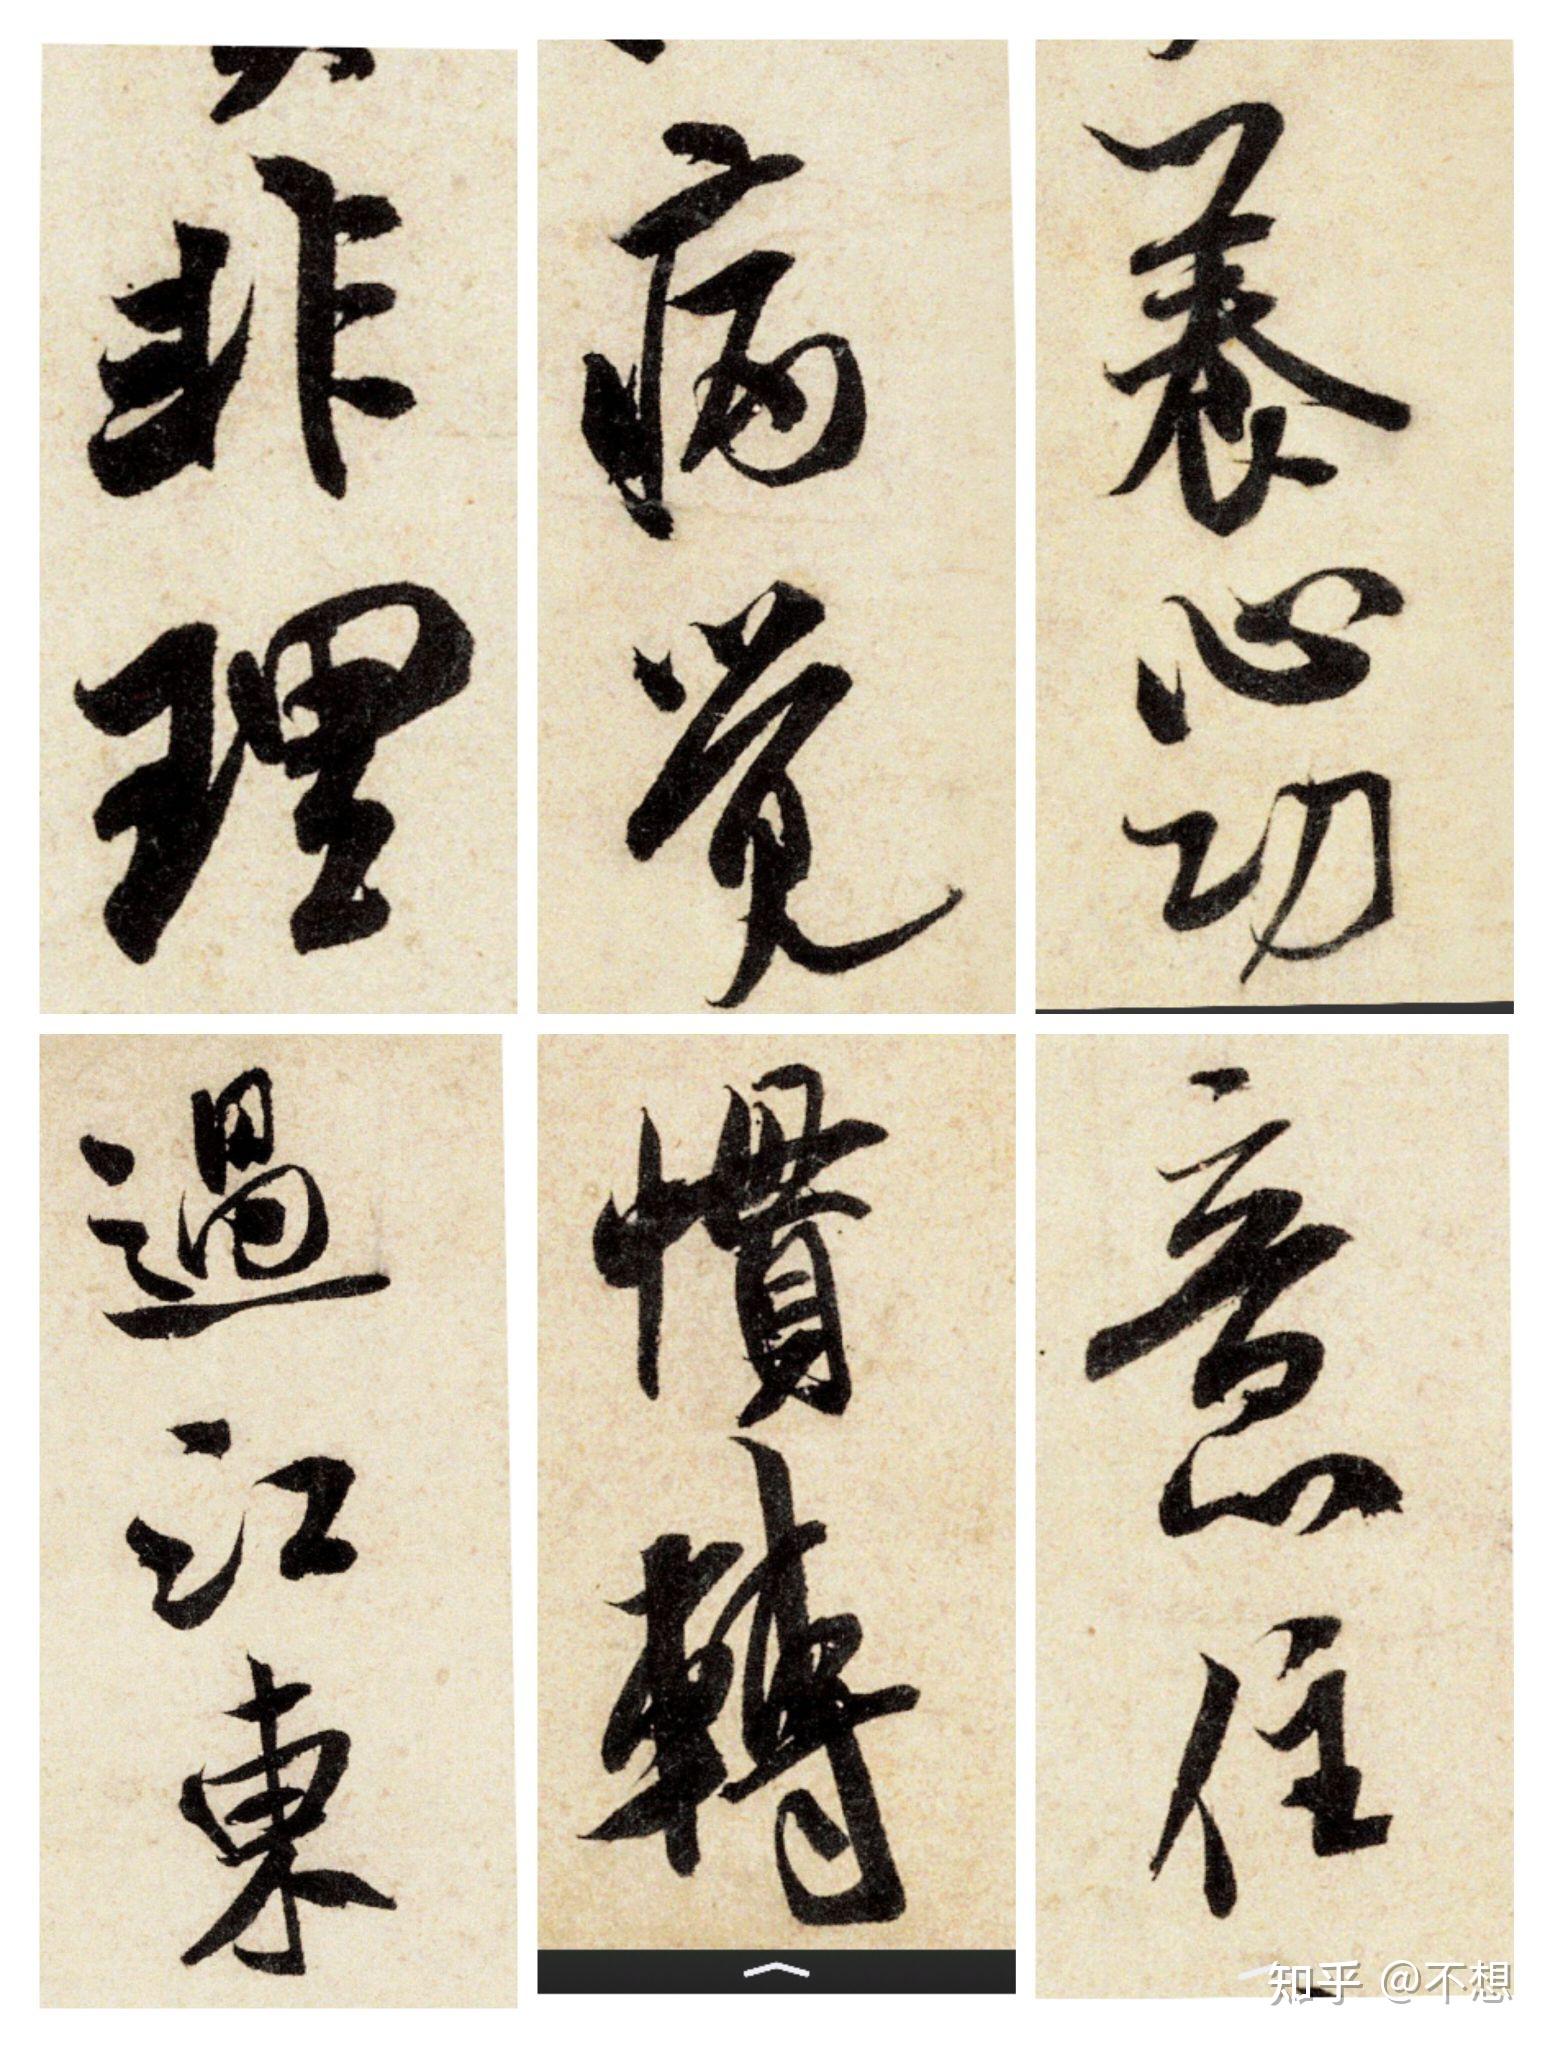 非理
病覺
養心功
過江東
慣轉
意住
知乎 @不想